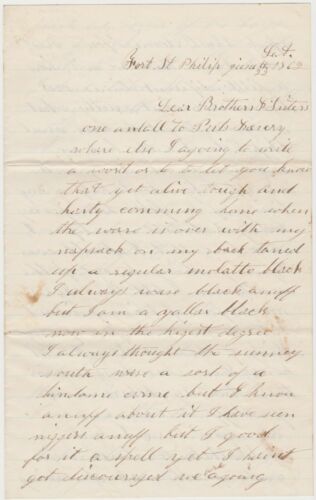 Fort St Philip june 1863 Lat.
Dear Brothers & Sisters
one antall to
where else I agoing to write
a word or to to let you know
that yet alive tough and
harty comming home when
the ware is over with my
napsack on my back taned
up a regular molatto black
I always ware black anuff
but I am a yallar black
now in the higest degree
I always thought the sunney
south were a sort of a
hindame but I know
anuff about it I have seen
niggers anuff but I good
for it a spell yet I hasnt
got discouraged we agoing